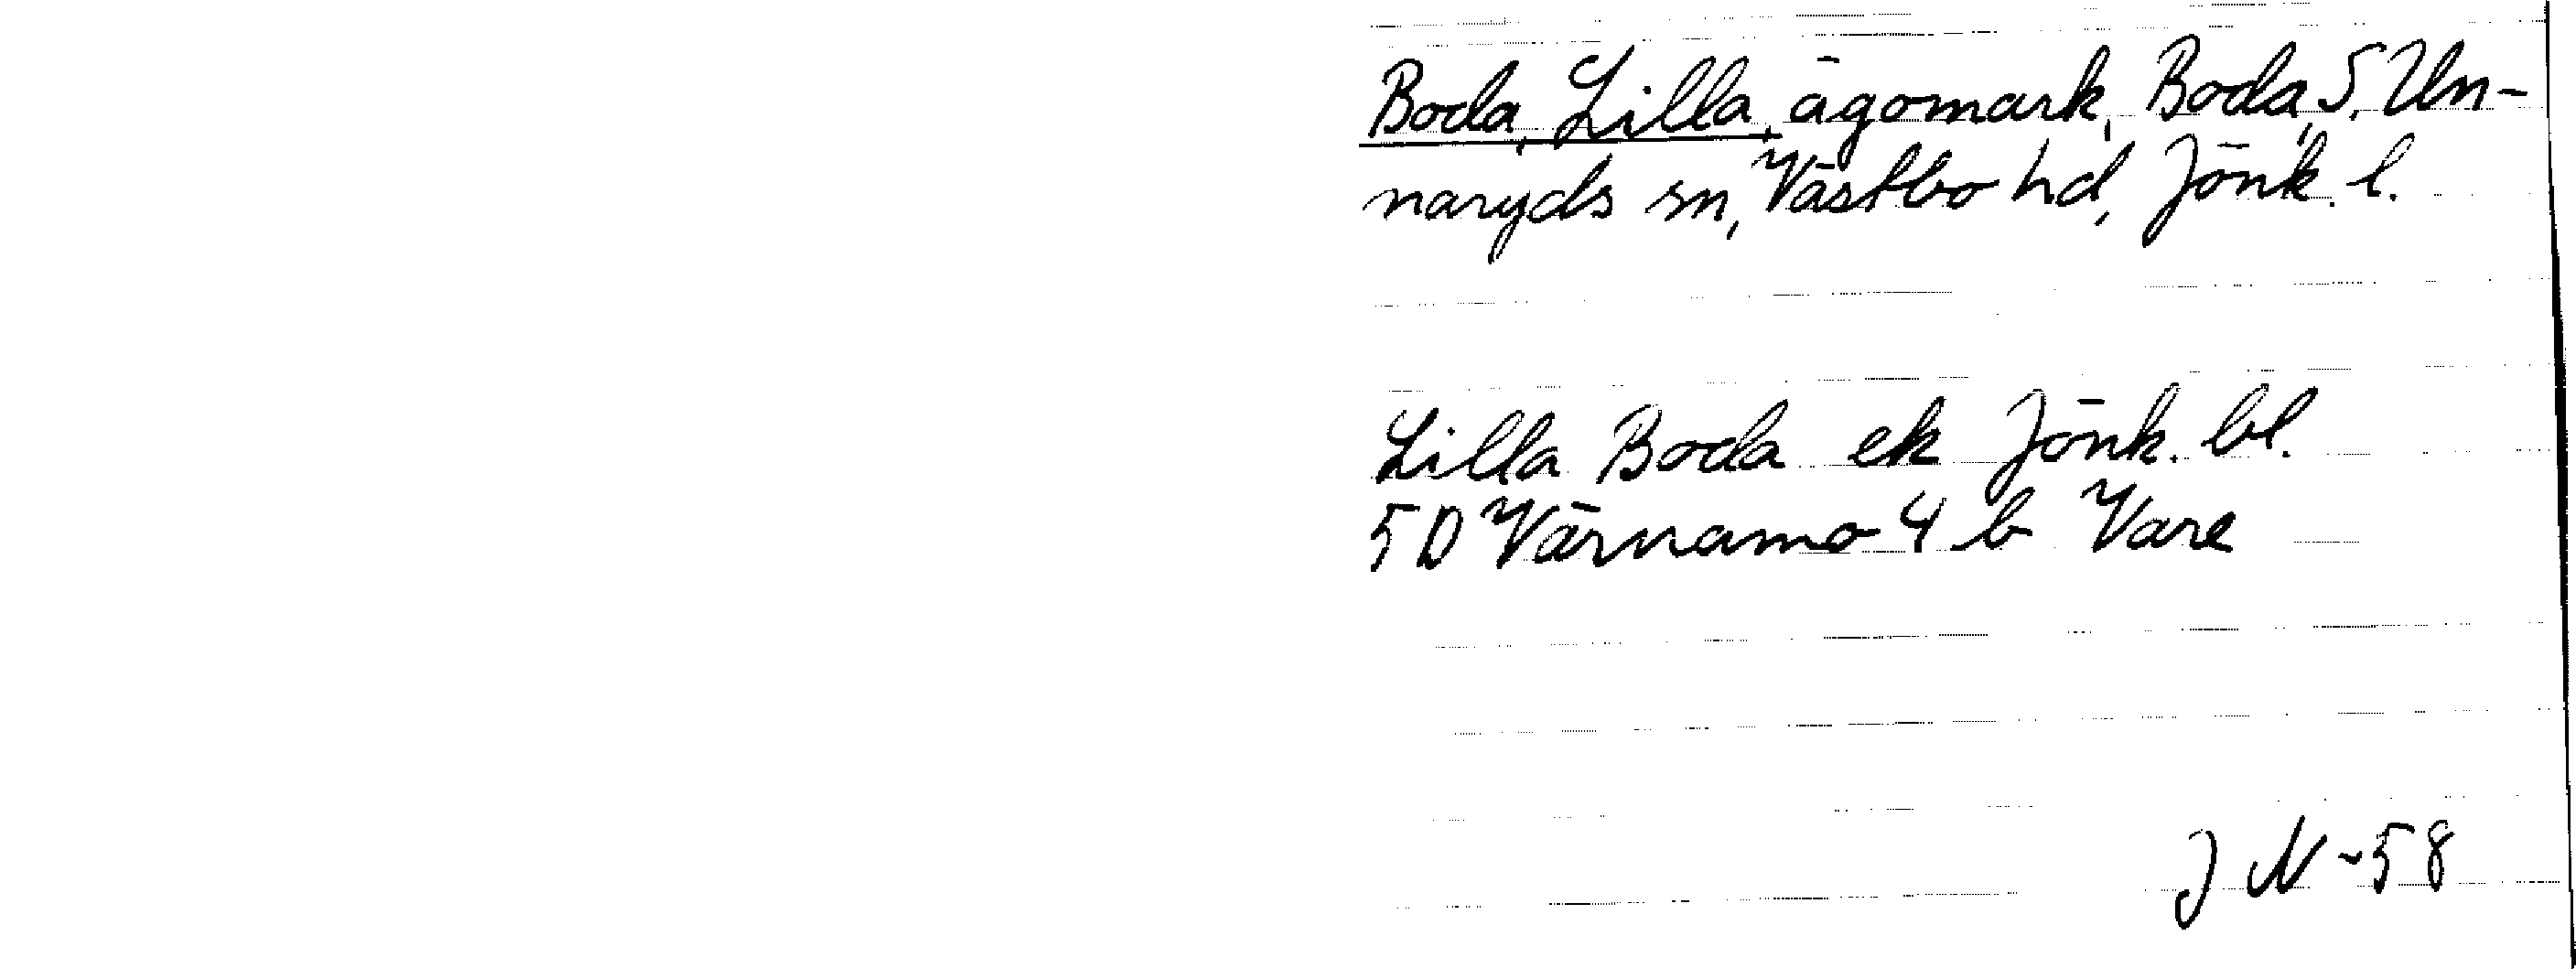 Boda, Lilla, ägomark, Boda, S. Un-
naryds sn, Västbo hd, Jönk. l.
Lilla Boda ek Jönk. bl.
5D Värnamo 4 b Vare
J N -58